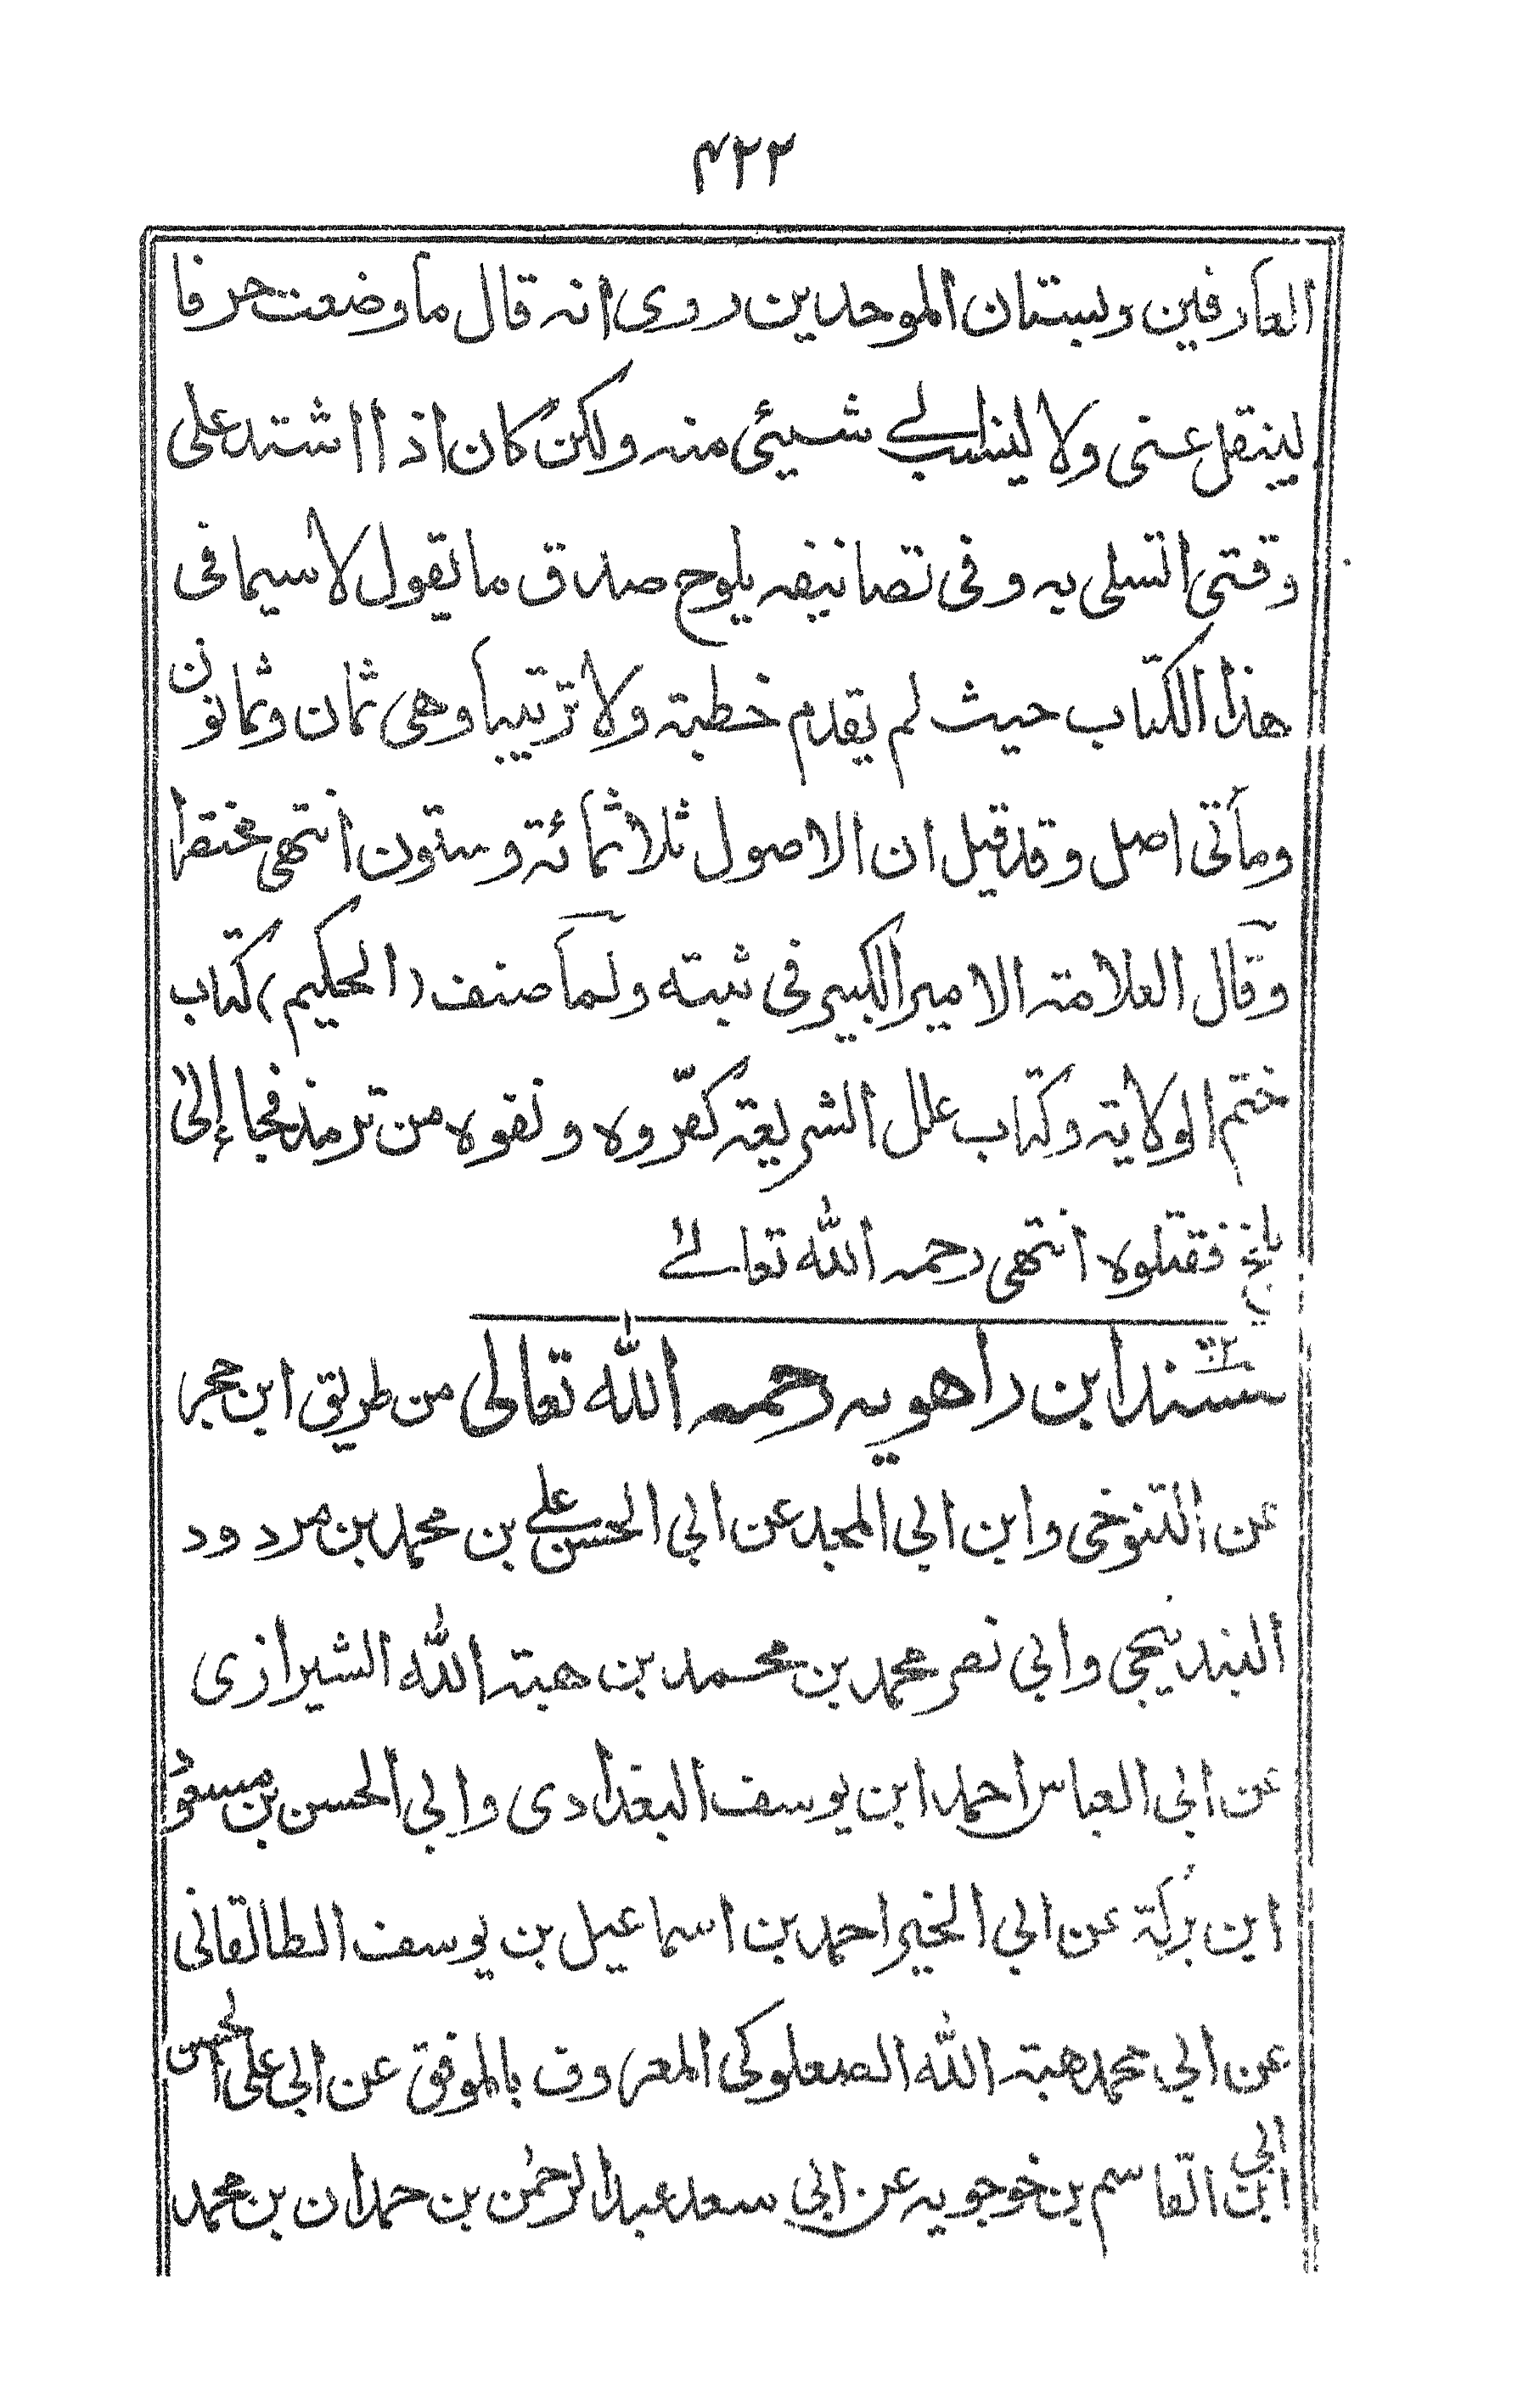 ٤٢٢
العارفين وبستان الموحدين روى انه قال ما وضعت حرفا
لينقل عنى ولا لينسب الى شيئى منه ولكن كان اذا اشتد على
وقتى اتسلى به وفى تصانيفه يلوح صدق ما يقول لا سيما فى
هذا الكتاب حيث لم يقدم خطبة ولا ترتيبا وهى ثمان وثمانون
ومأتى اصل وقد قيل ان الاصول ثلاثمائة وستون انتهى مختصرا
وقال العلامة الامير الكبير فى ثبته ولما صنف (الحكيم) كتاب
ختم الولاية وكتاب علل الشريعة كفّروه ونفوه من ترمذ فجاء إلى
بلخ فقتلوه انتهى رحمه الله تعالى
مسند ابن راهويه رحمه الله تعالى من طريق ابن حجر
عن التنوخى وابن ابى المجد عن ابى الحسن على بن محمد بن مردود
البندنيجى وابى نصر محمد بن محمد بن هبة الله الشيرازى
عن ابى العباس احمد ابن يوسف البغدادى وابى الحسن بن مسعود
ابن بركة عن ابى الخير احمد بن اسماعيل بن يوسف الطالقانى
عن ابى محمد هبة الله الصعلوكى المعروف بالموفق عن ابى على الحسن
ابن ابى القاسم بن خوجويه عن ابى سعد عبد الرحمن بن حمدان بن محمد